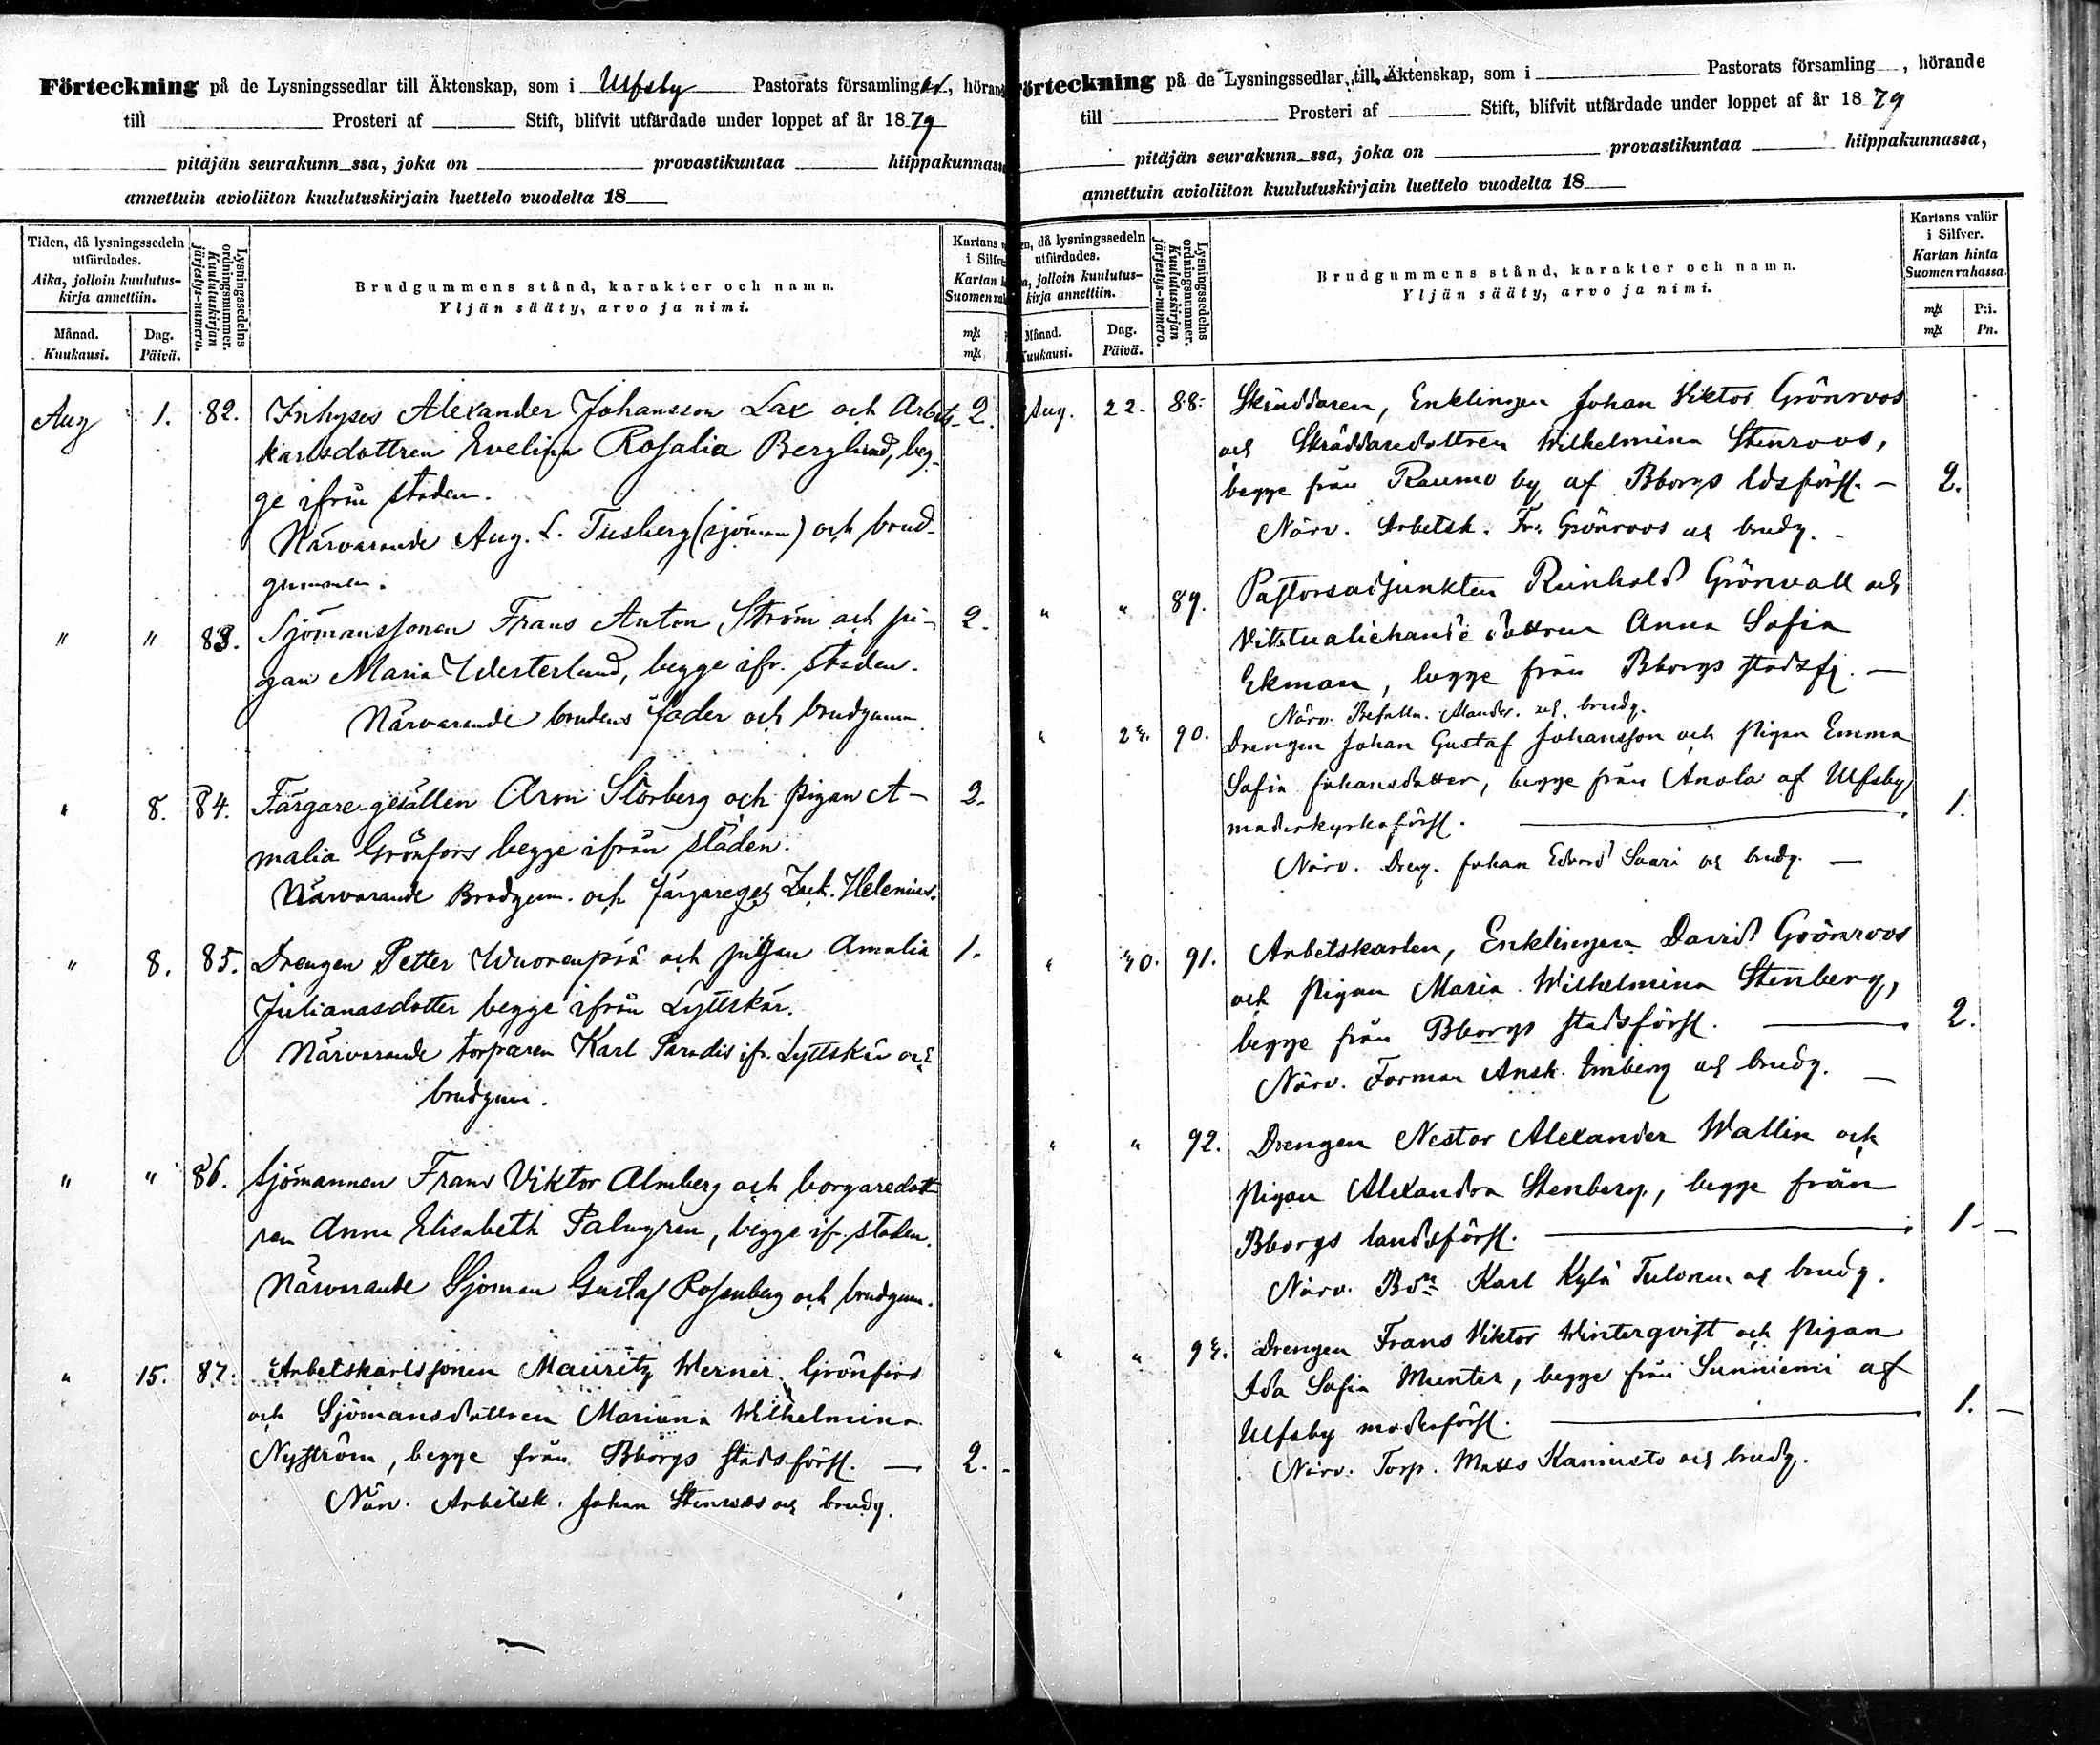 Förteckning på de Lysningssedlar till Äktenskap, som i Ulfsby Pastorats församlingar, hörande
till Prosteri af Stift, blifvit utfärdade under loppet af år 1879
pitäjän seurakunn ssa, joka on provastikuntaa hiippakunnassa
annettuin avioliiton kuulutuskirjain luettelo vuodelta 18
Tiden, då lysningssedeln utfärdades.
Aika, jolloin kuulutus-kirja annettiin.
Månad.
Kuukausi.
Dag.
Päivä.
Lysningssedelns ordningsnummer.
Kuulutuskirjan järjestys-numero.
Brudgummens stånd, karakter och namn.
Yljän sääty, arvo ja nimi.
Kartans
i Silfver
Kartan
Suomenra
m
m
Aug 1. 82. Inhyses Alexander Johansson Lax och Arbets- 2.
karlsdottren Evelina Rosalia Berglund, beg-
ge ifrån staden.
Närvarande Aug. L. Tusberg (sjöman) och brud-
gummen.
" " 83. Sjömanssonen Frans Anton Ström och pi- 2.
gan Maria Westerlund, begge ifr. staden.
Närvarande brudens fader och brudgumm
" 8. 84. Färgare-gesällen Aron Storberg och pigan A- 2.
malia Grönfors begge ifrån staden.
Närvarande Brudgum. och färgareges Zach. Helenius.
" 8. 85. Drengen Petter Wuorenpää och pigan Amalia 1.
Julianasdotter begge ifrån Lyttskär.
Närvarande torparen Karl Paradis ifr. Lyttskär och
brudgum.
" " 86. Sjömannen Frans Viktor Almberg och borgaredott
ren Anna Elisabeth Palmgren, begge ifr. staden.
Närvarande Sjöman Gustaf Rosenberg och brudgum.
" 15. 87. Arbetskarlssonen Mauritz Werner Grönfors
och Sjömansdottren Mariana Wilhelmina
Nyström, begge från Bborgs stadsförsl. — 2. -
Närv. Arbetsk. Johan Stenroos och brudg.
Förteckning på de Lysningssedlar till Äktenskap, som i Pastorats församling , hörande
till Prosteri af Stift, blifvit utfärdade under loppet af år 1879
pitäjän seurakunn ssa, joka on provastikuntaa hiippakunnassa,
annettuin avioliiton kuulutuskirjain luettelo vuodelta 18
en, då lysningssedeln utfärdades.
a, jolloin kuulutus-kirja annettiin.
Månad.
Kuukausi.
Dag.
Päivä.
Lysningssedelns ordningsnummer.
Kuulutuskirjan järjestys-numero.
Brudgummens stånd, karakter och namn.
Yljän sääty, arvo ja nimi.
Kartans valör
i Silfver.
Kartan hinta
Suomen rahassa.
m P:i.
m Pn.
Aug. 22. 88. Skräddaren, Enklingen Johan Viktor Grönroos
och Skräddaredottren Wilhelmina Stenroos,
begge från Raumo by af Bborgs ldsförsl. — 2.
Närv. Arbetsk. Fr. Grönroos och brudg. -
" " 89. Pastorsadjunkten Reinhold Grönvall och
Viktualiehand. dottren Anna Sofia
Ekman, begge från Bborgs stadsf. —
Närv. Alander. och brudg.
" 23. 90. Drengen Johan Gustaf Johansson och pigan Emma
Sofia Johansdotter, begge från Anola af Ulfsby
moderkyrkoförsl. — 1.
Närv. Dreng. Johan Edvard Saari och brudg. —
" 30. 91. Arbetskarlen, Enklingen David Grönroos
och pigan Maria Wilhelmina Stenberg,
begge från Bborgs stadsförsl. — 2.
Närv. Forman Ansh. Imberg och brudg. —
" " 92. Drengen Nestor Alexander Wallin och
pigan Alexandra Stenberg, begge från
Bborgs landsförsl. — 1 - —
Närv. Bdn Karl Kylä Tulonen och brudg.
" " 93. Drengen Frans Viktor Winterqvist och pigan
Ida Sofia Munter, begge från Sunniemi af
Ulfsby moderförsl. — 1. —
Närv. Torp. Matts Kannisto och brudg.